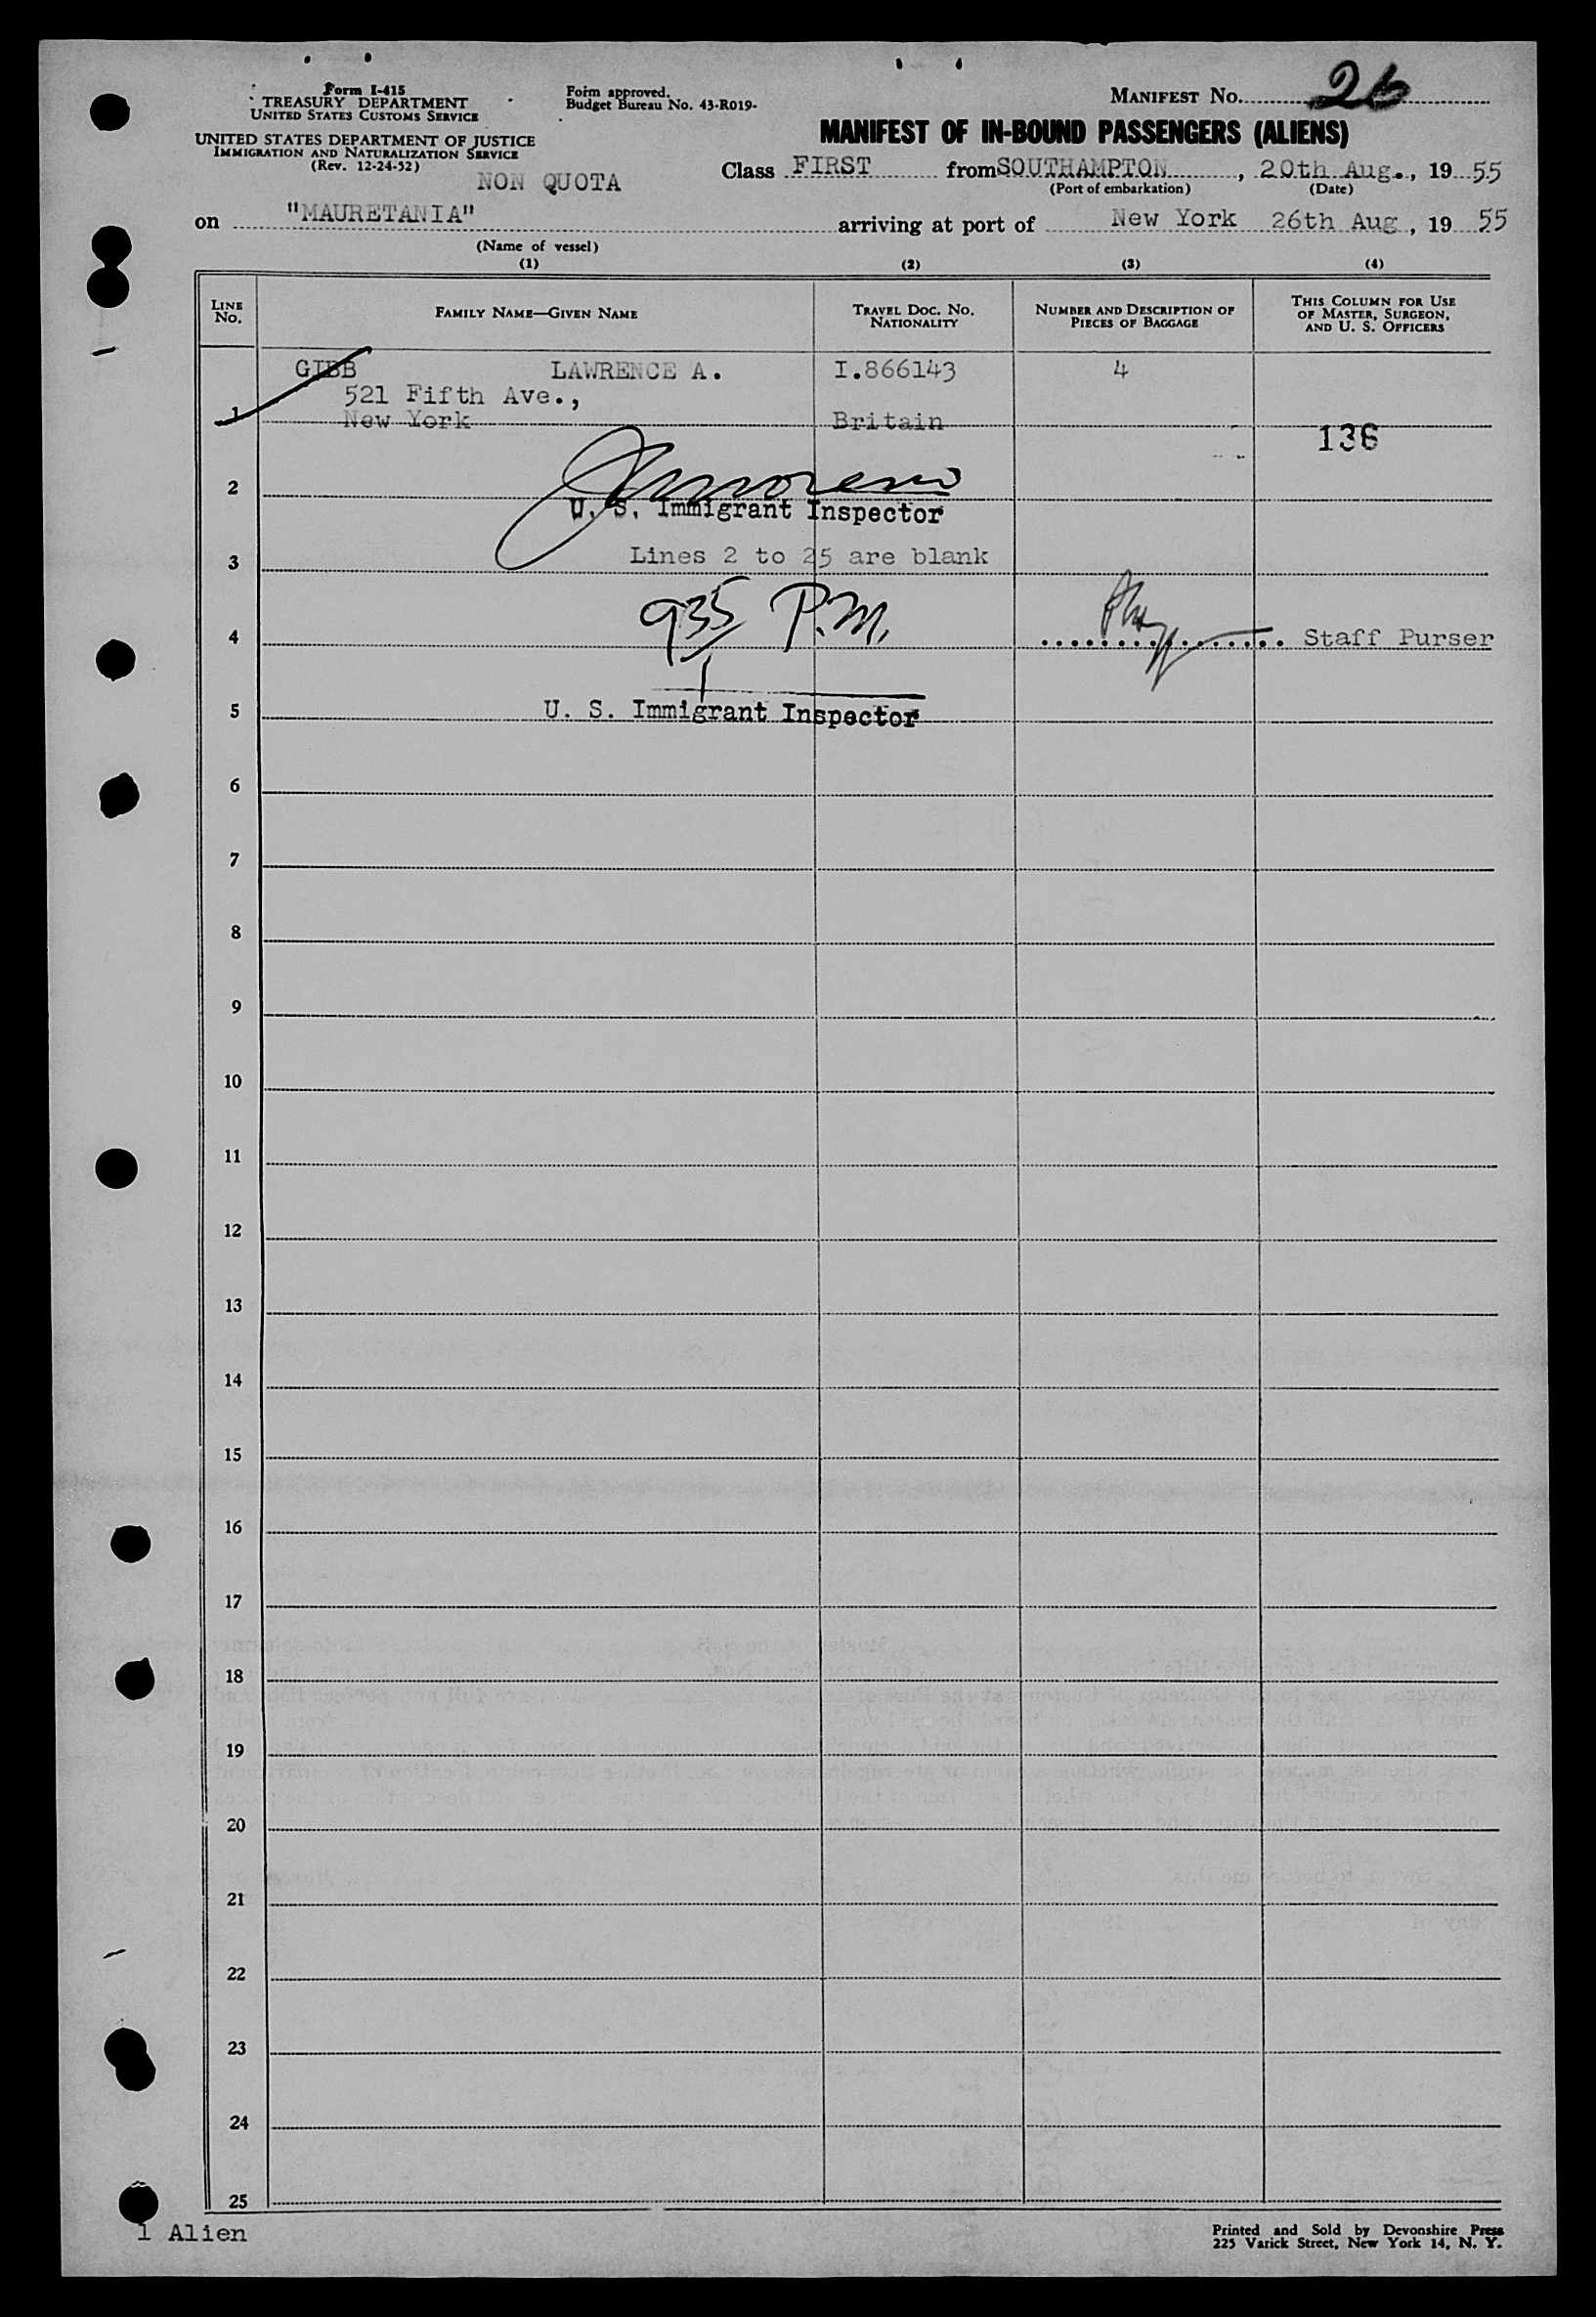 Form I-415
TREASURY DEPARTMENT
UNITED STATES CUSTOMS SERVICE
UNITED STATES DEPARTMENT OF JUSTICE
IMMIGRATION AND NATURALIZATION SERVICE
(Rev. 12-24-52)
Form approved.
Budget Bureau No. 43-R019-
MANIFEST No. 26
MANIFEST OF IN-BOUND PASSENGERS (ALIENS)
NON QUOTA
Class FIRST from SOUTHAMPTON, 20th Aug., 19 55
(Port of embarkation) (Date)
on "MAURETANIA" arriving at port of New York 26th Aug, 19 55
(Name of vessel)
(1) (2) (3) (4)
LINE No.
FAMILY NAME—GIVEN NAME
TRAVEL DOC. No. NATIONALITY
NUMBER AND DESCRIPTION OF PIECES OF BAGGAGE
THIS COLUMN FOR USE OF MASTER, SURGEON, AND U. S. OFFICERS
GIBB LAWRENCE A. I.866143 4
521 Fifth Ave.,
1 New York Britain
136
2
U. S. Immigrant Inspector
Lines 2 to 25 are blank
3
935 P.M.
4 Staff Purser
5 U. S. Immigrant Inspector
6
7
8
9
10
11
12
13
14
15
16
17
18
19
20
21
22
23
24
25
1 Alien
Printed and Sold by Devonshire Press
225 Varick Street, New York 14, N. Y.